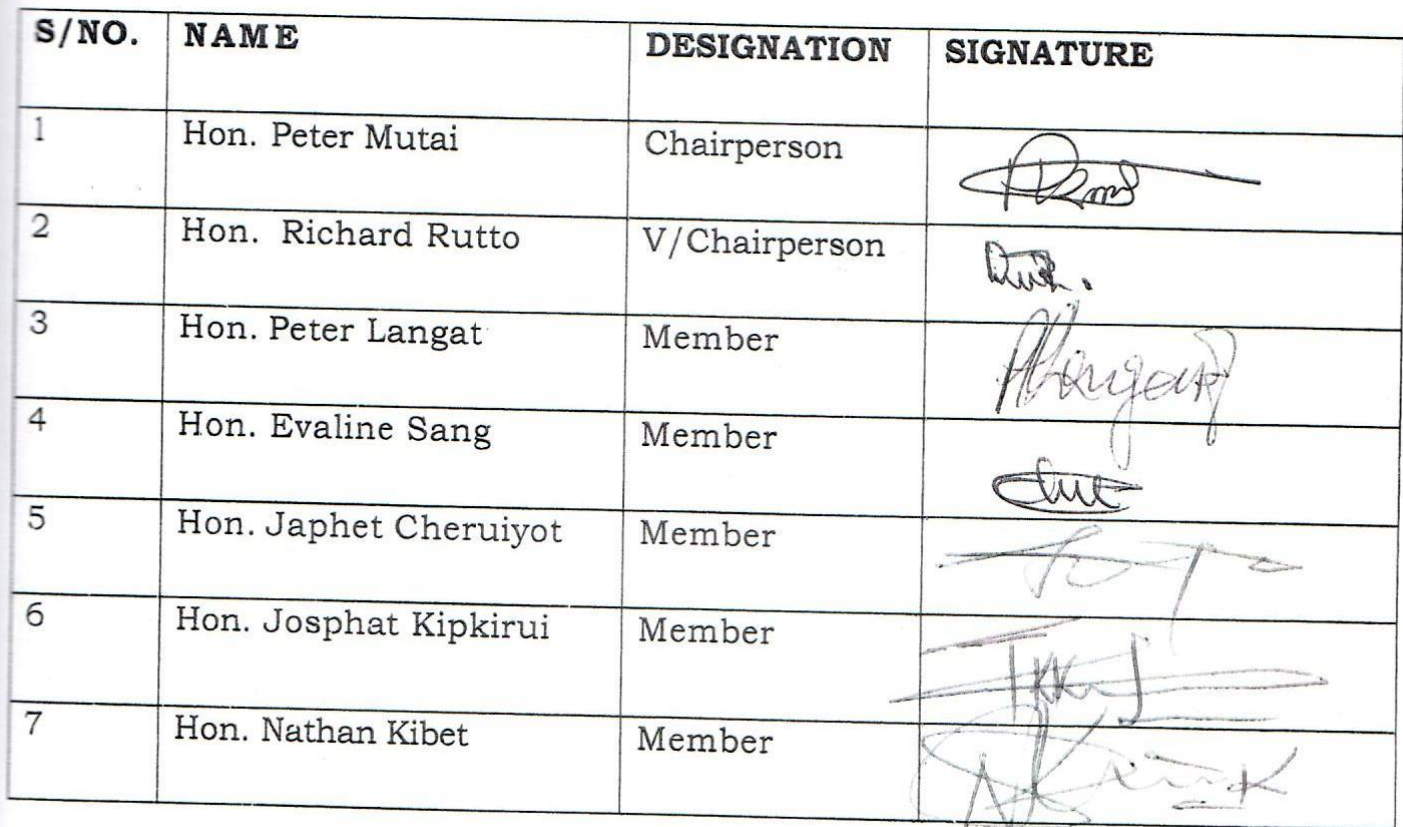 S/NO. NAME DESIGNATION SIGNATURE
1 Hon. Peter Mutai Chairperson
2 Hon. Richard Rutto V/Chairperson
3 Hon. Peter Langat Member
4 Hon. Evaline Sang Member
5 Hon. Japhet Cheruiyot Member
6 Hon. Josphat Kipkirui Member
7 Hon. Nathan Kibet Member